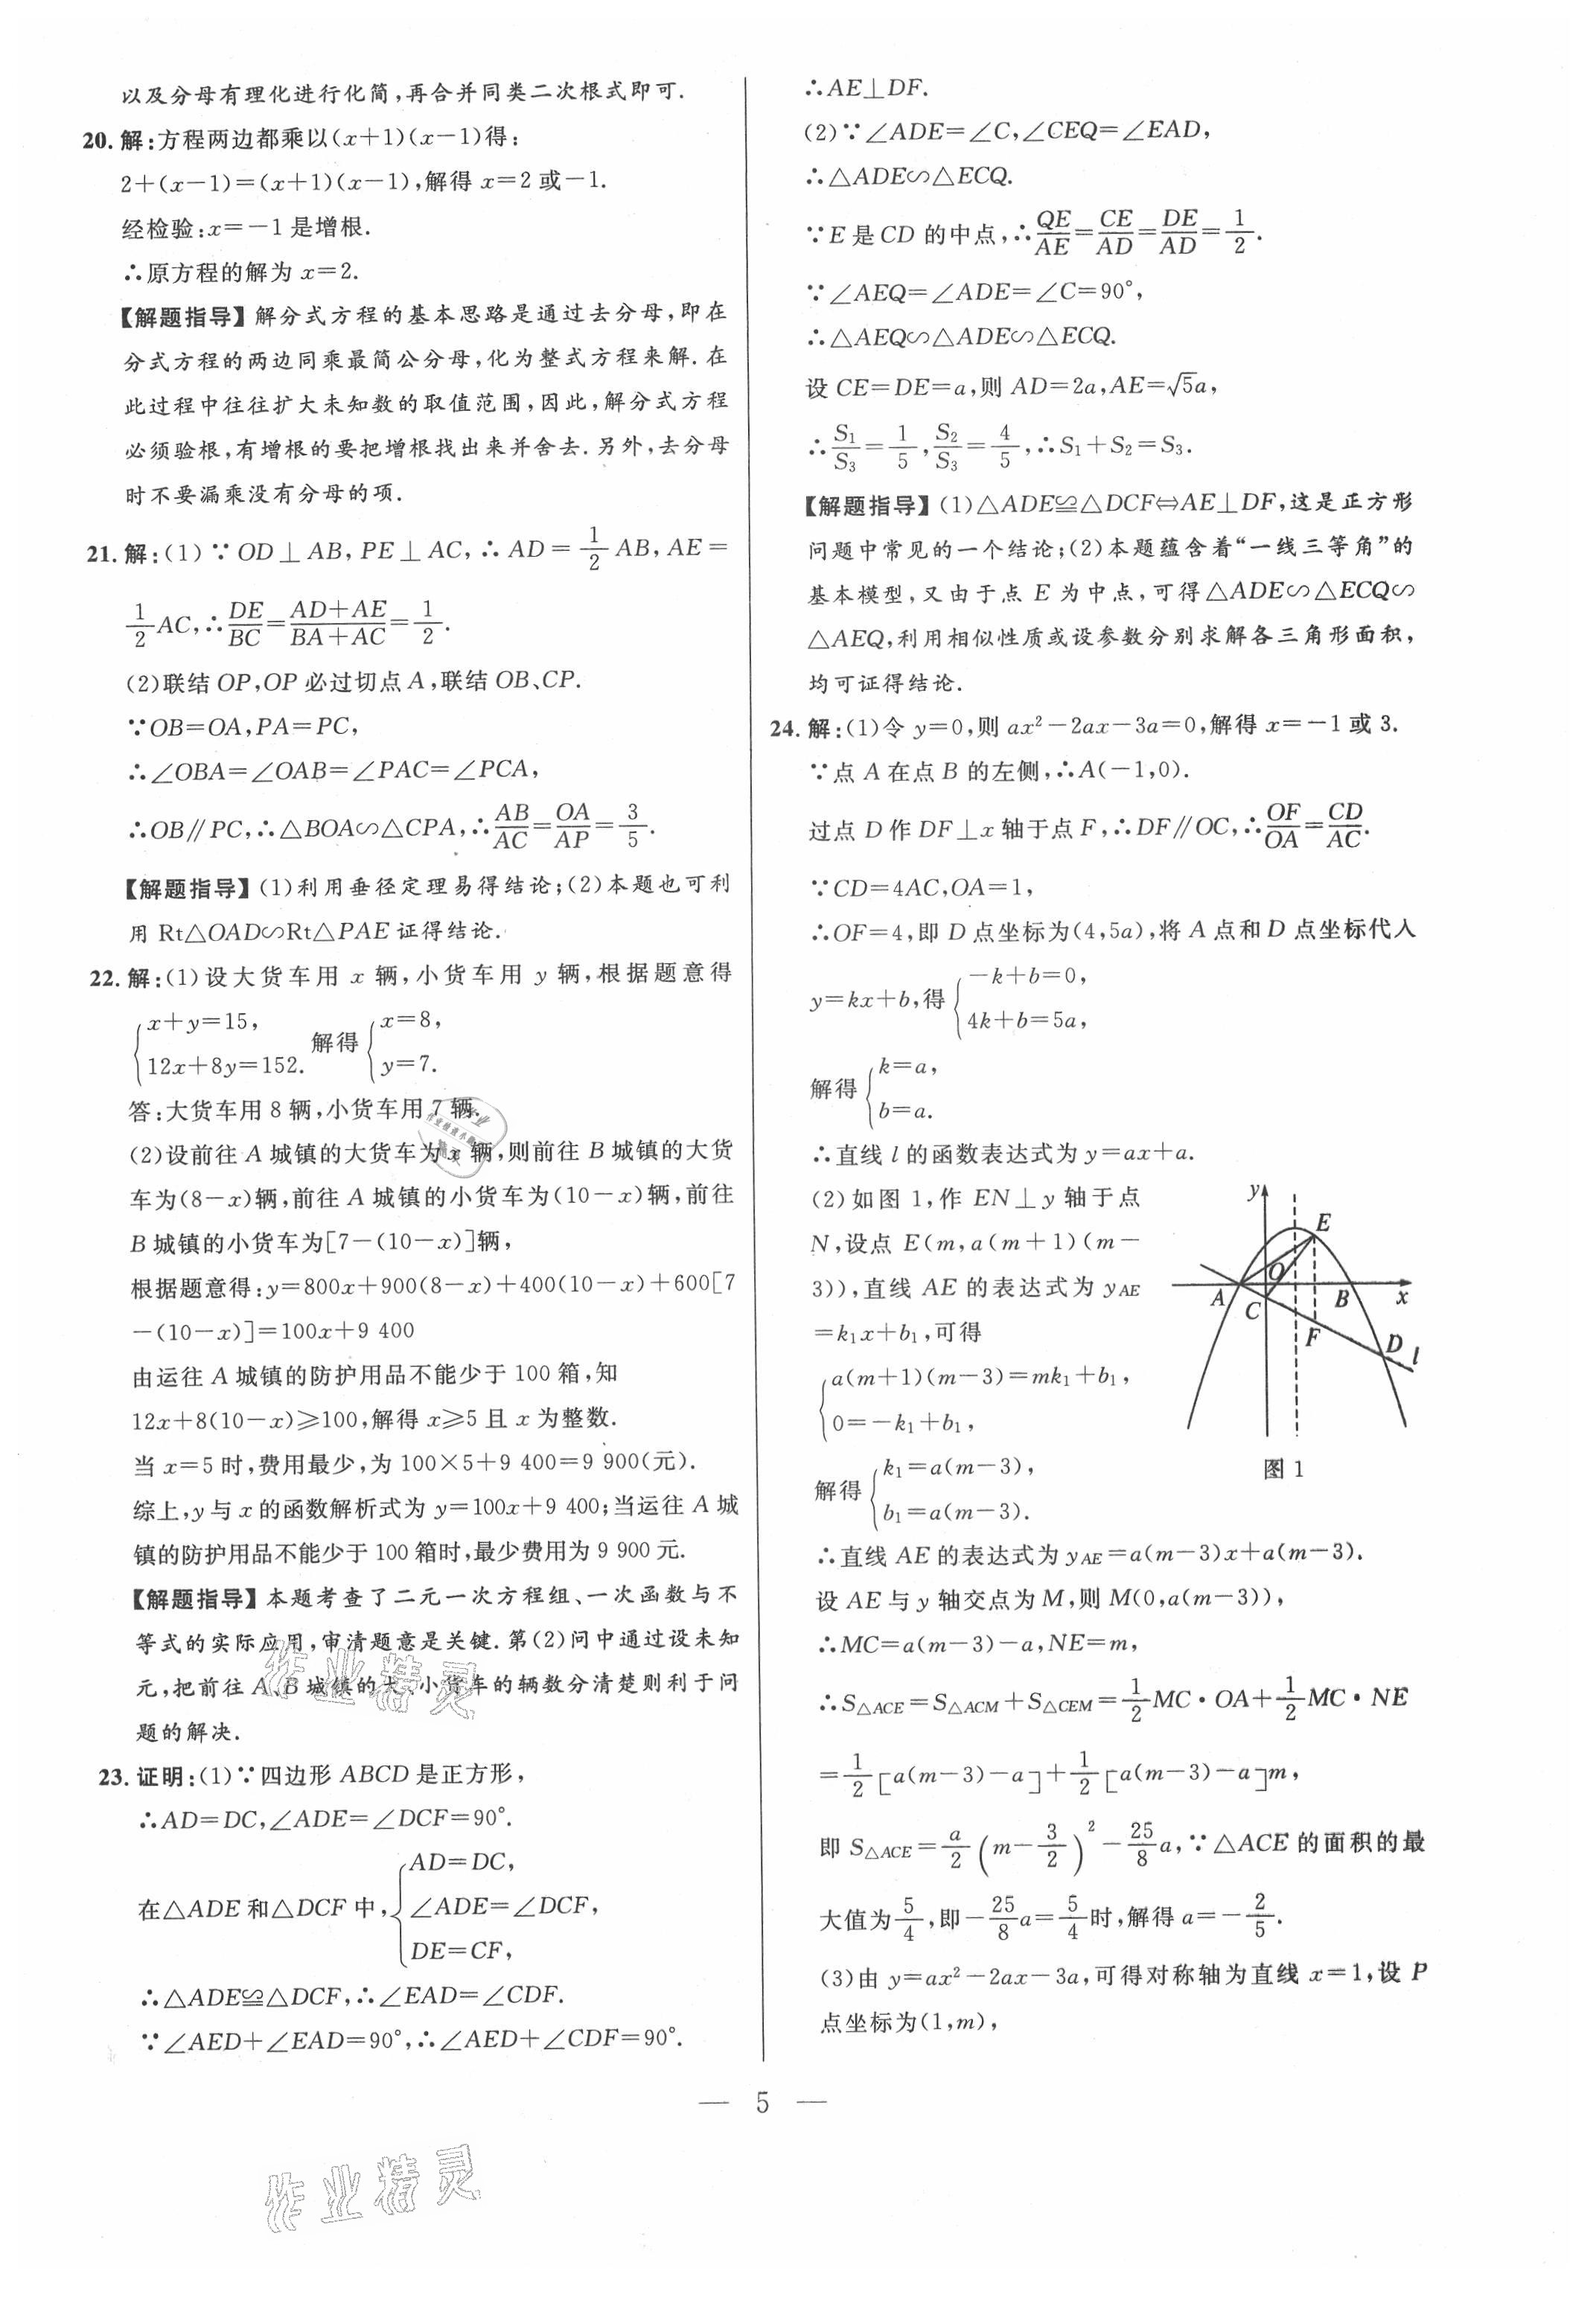 以及分母有理化进行化简,再合并同类二次根式即可.
20.解:方程两边都乘以(x+1)(x-1)得:
2+(x-1)=(x+1)(x-1),解得 x=2 或-1.
经检验:x=-1 是增根.
∴原方程的解为 x=2.
【解题指导】解分式方程的基本思路是通过去分母,即在
分式方程的两边同乘最简公分母,化为整式方程来解.在
此过程中往往扩大未知数的取值范围,因此,解分式方程
必须验根,有增根的要把增根找出来并舍去.另外,去分母
时不要漏乘没有分母的项.
21.解:(1)∵OD⊥AB,PE⊥AC,∴AD=1/2AB,AE=
1/2AC,∴DE/BC=(AD+AE)/(BA+AC)=1/2.
(2)联结 OP,OP 必过切点 A,联结 OB、CP.
∵OB=OA,PA=PC,
∴∠OBA=∠OAB=∠PAC=∠PCA,
∴OB∥PC,∴△BOA∽△CPA,∴AB/AC=OA/AP=3/5.
【解题指导】(1)利用垂径定理易得结论;(2)本题也可利
用 Rt△OAD∽Rt△PAE 证得结论.
22.解:(1)设大货车用 x 辆,小货车用 y 辆,根据题意得
{x+y=15, 12x+8y=152. 解得 {x=8, y=7.
答:大货车用 8 辆,小货车用 7 辆.
(2)设前往 A 城镇的大货车为 x 辆,则前往 B 城镇的大货
车为(8-x)辆,前往 A 城镇的小货车为(10-x)辆,前往
B 城镇的小货车为[7-(10-x)]辆,
根据题意得:y=800x+900(8-x)+400(10-x)+600[7
-(10-x)]=100x+9 400
由运往 A 城镇的防护用品不能少于 100 箱,知
12x+8(10-x)≥100,解得 x≥5 且 x 为整数.
当 x=5 时,费用最少,为 100×5+9 400=9 900(元).
综上,y 与 x 的函数解析式为 y=100x+9 400;当运往 A 城
镇的防护用品不能少于 100 箱时,最少费用为 9 900 元.
【解题指导】本题考查了二元一次方程组、一次函数与不
等式的实际应用,审清题意是关键.第(2)问中通过设未知
元,把前往 A、B 城镇的大、小货车的辆数分清楚则利于问
题的解决.
23.证明:(1)∵四边形 ABCD 是正方形,
∴AD=DC,∠ADE=∠DCF=90°.
在△ADE 和△DCF 中,{AD=DC, ∠ADE=∠DCF, DE=CF,
∴△ADE≌△DCF,∴∠EAD=∠CDF.
∵∠AED+∠EAD=90°,∴∠AED+∠CDF=90°.
∴AE⊥DF.
(2)∵∠ADE=∠C,∠CEQ=∠EAD,
∴△ADE∽△ECQ.
∵E 是 CD 的中点,∴QE/AE=CE/AD=DE/AD=1/2.
∵∠AEQ=∠ADE=∠C=90°,
∴△AEQ∽△ADE∽△ECQ.
设 CE=DE=a,则 AD=2a,AE=√5a,
∴S₁/S₃=1/5,S₂/S₃=4/5,∴S₁+S₂=S₃.
【解题指导】(1)△ADE≌△DCF⇔AE⊥DF,这是正方形
问题中常见的一个结论;(2)本题蕴含着“一线三等角”的
基本模型,又由于点 E 为中点,可得△ADE∽△ECQ∽
△AEQ,利用相似性质或设参数分别求解各三角形面积,
均可证得结论.
24.解:(1)令 y=0,则 ax²-2ax-3a=0,解得 x=-1 或 3.
∵点 A 在点 B 的左侧,∴A(-1,0).
过点 D 作 DF⊥x 轴于点 F,∴DF∥OC,∴OF/OA=CD/AC.
∵CD=4AC,OA=1,
∴OF=4,即 D 点坐标为(4,5a),将 A 点和 D 点坐标代入
y=kx+b,得 {-k+b=0, 4k+b=5a,
解得 {k=a, b=a.
∴直线 l 的函数表达式为 y=ax+a.
(2)如图 1,作 EN⊥y 轴于点
N,设点 E(m,a(m+1)(m-
3)),直线 AE 的表达式为 yAE
=k₁x+b₁,可得
{a(m+1)(m-3)=mk₁+b₁, 0=-k₁+b₁,
解得 {k₁=a(m-3), b₁=a(m-3).
y E O A C B x F D l
图 1
∴直线 AE 的表达式为 yAE=a(m-3)x+a(m-3).
设 AE 与 y 轴交点为 M,则 M(0,a(m-3)),
∴MC=a(m-3)-a,NE=m,
∴S△ACE=S△ACM+S△CEM=1/2MC·OA+1/2MC·NE
=1/2[a(m-3)-a]+1/2[a(m-3)-a]m,
即 S△ACE=a/2(m-3/2)²-25/8a,∵△ACE 的面积的最
大值为5/4,即-25/8a=5/4时,解得 a=-2/5.
(3)由 y=ax²-2ax-3a,可得对称轴为直线 x=1,设 P
点坐标为(1,m),
— 5 —
作业精灵
作业精灵